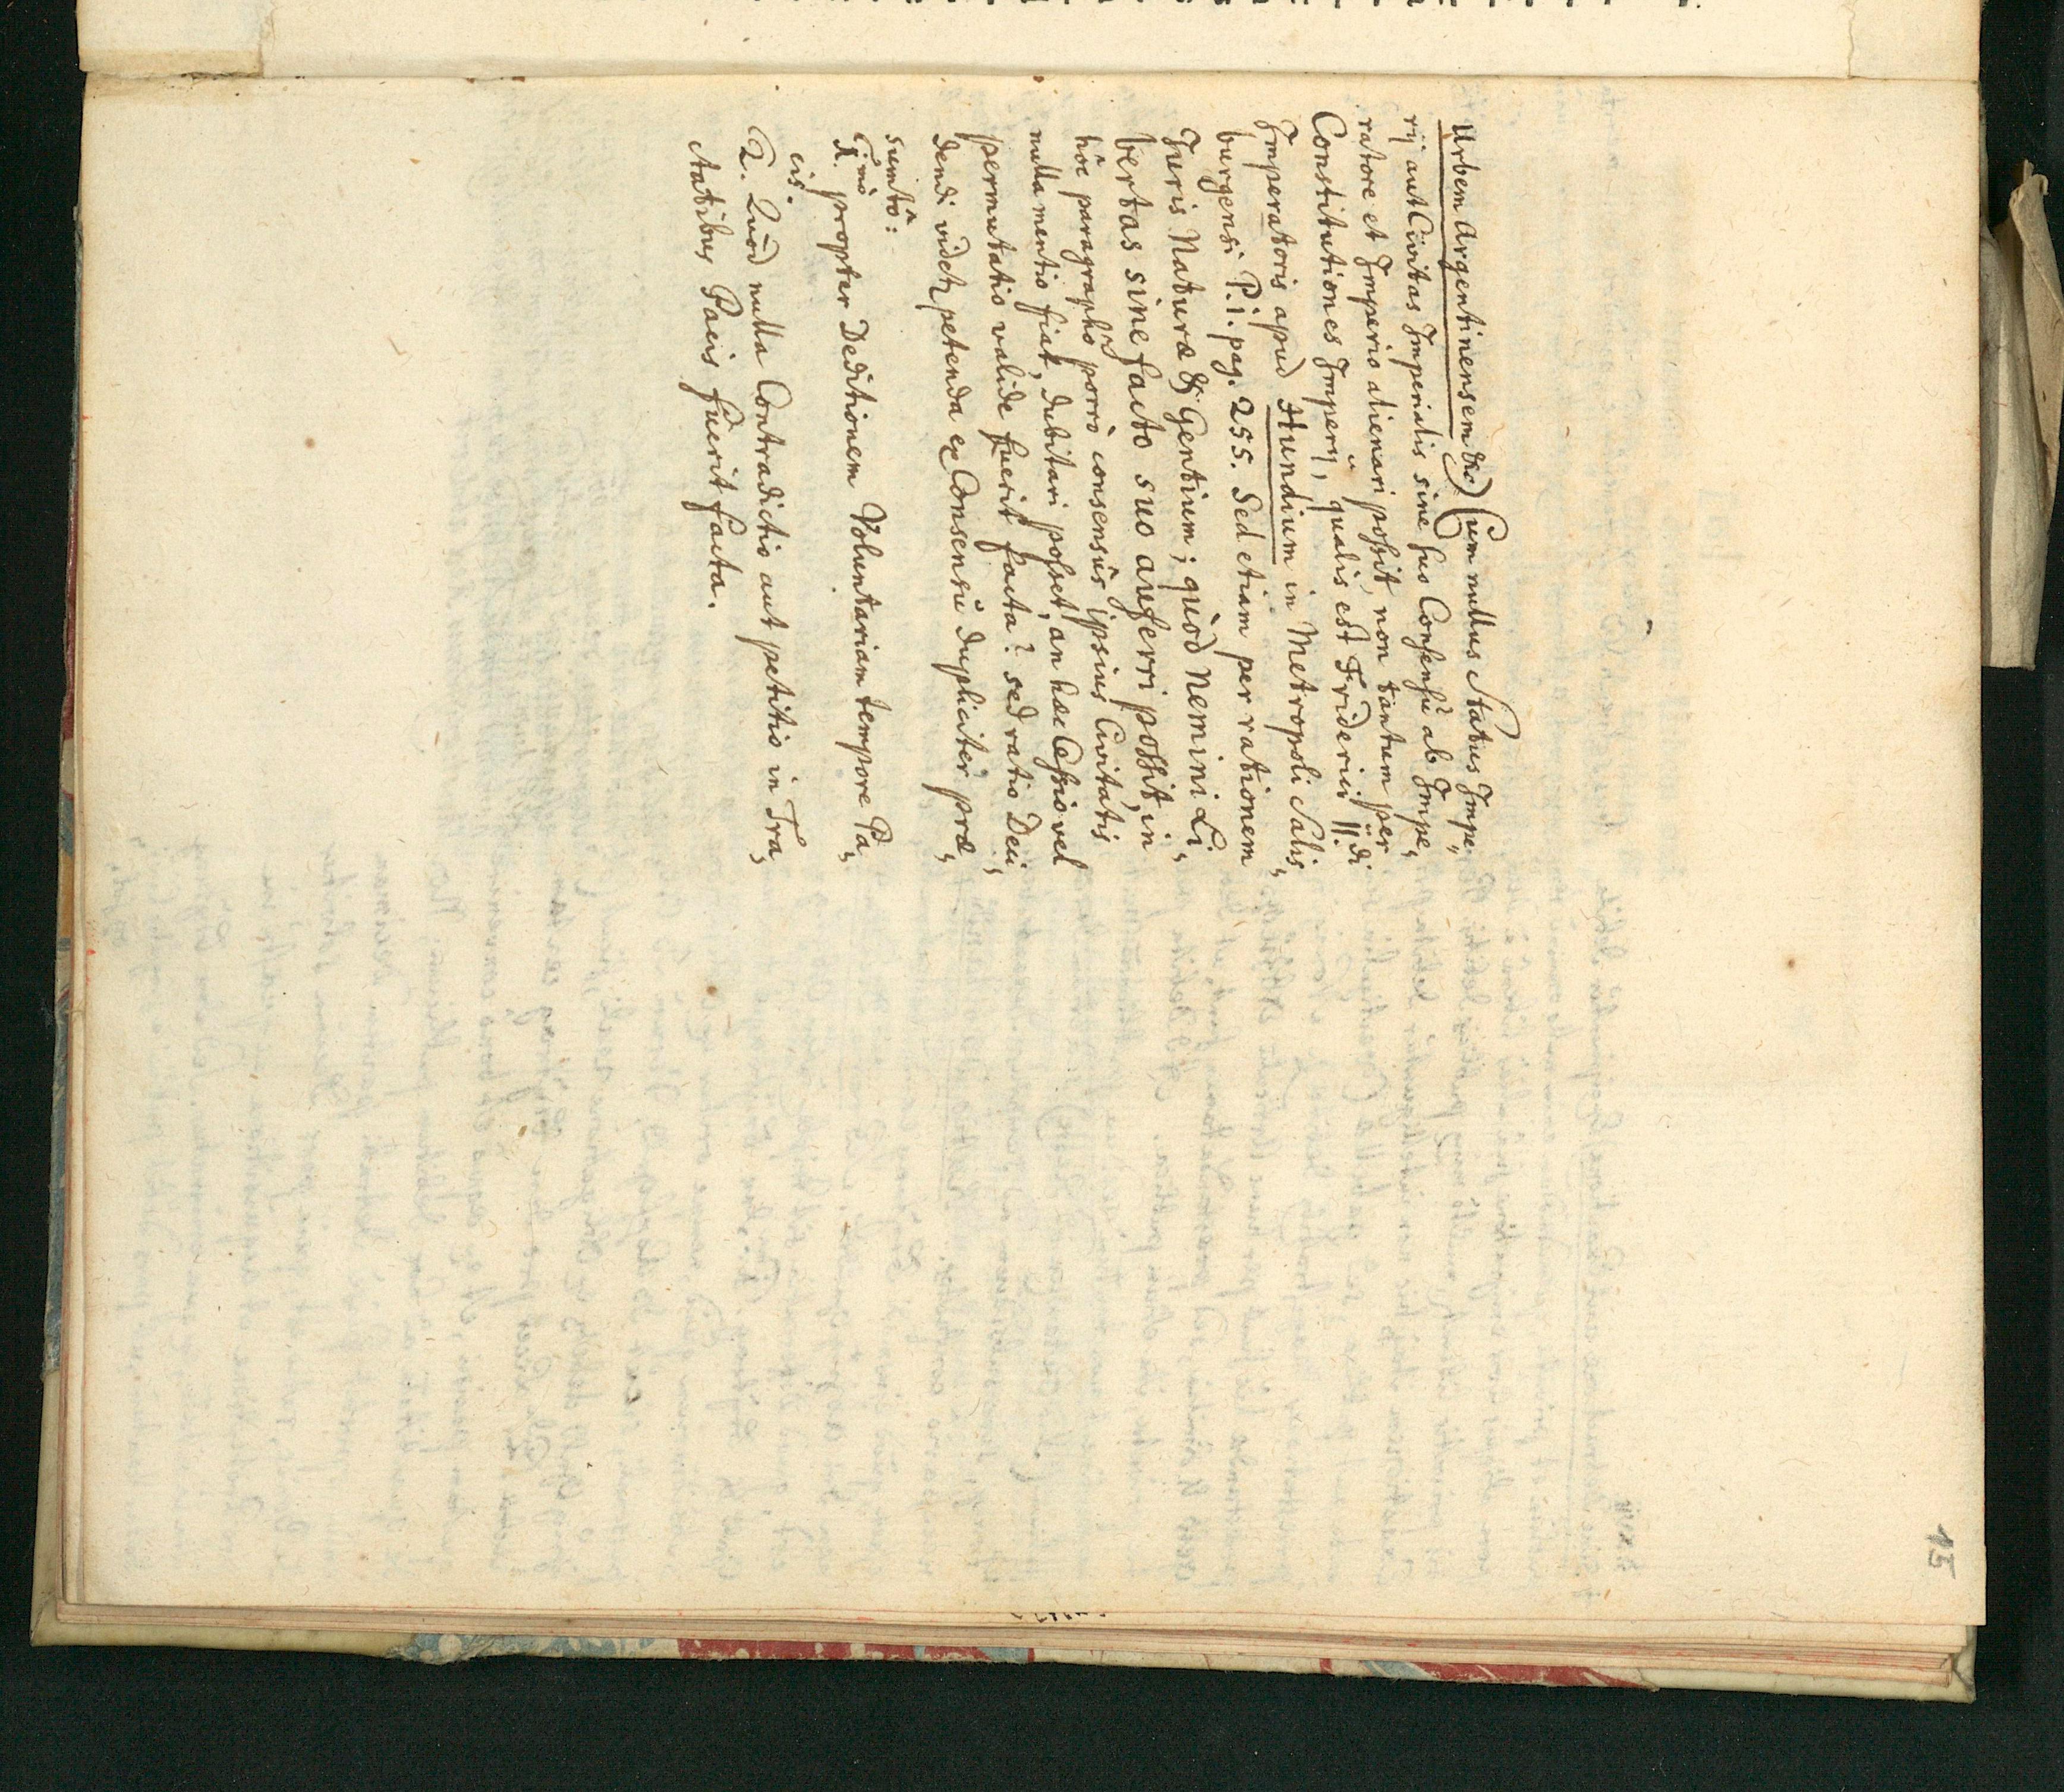 Urbem Argentinensem &c) Cum nullus Status Impe„
rij aut Civitas Imperialis sine suo Consensu ab Impe„
ratore et Imperio alienari possit, non tantum per
Constitutiones Imperÿ, qualis est Friderici II.di
Imperatoris apud Hundium in Metropoli Salis„
burgensi P. i. pag. 255. Sed etiam per rationem
Juris Naturæ & Gentium; quòd nemini Li„
bertas sine facto suo auferri possit, in
hôc paragraphô porrò consensûs ipsius Civitatis
nulla mentio fiat, dubitari posset, an hæc Cessio vel
permutatio valide fuerit facta? sed ratio Deci„
dendi videtur petenda ex Consensu dupliciter præ„
sumtô:
1.mò propter Deditionem Voluntariam tempore Pa„
cis.
2. Quòd nulla Contradictio aut petitio in Tra„
ctatibus Pacis fuerit facta.
15